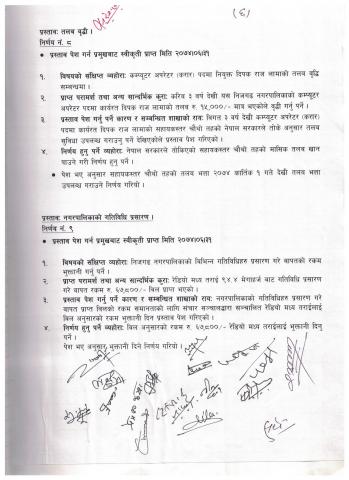 (६)
प्रस्तावः तलव वृद्धी ।
निर्णय नं. ८
• प्रस्ताव पेश गर्न प्रमुखबाट स्वीकृती प्राप्त मिति २०७४।०६।३१
१. विषयको संक्षिप्त व्यहोराः कम्प्युटर अपरेटर (करार) पदमा नियुक्त दिपक राज लामाको तलव वृद्धि
सम्बन्धमा ।
२. प्राप्त परामर्श तथा अन्य सान्दर्भिक कुराः करिब ३ वर्ष देखी यस निजगढ नगरपालिकाको कम्प्युटर
अपरेटर पदमा कार्यरत दिपक राज लामाको तलव रु. १५,०००/- मात्र भएकोले वृद्धी गर्नु पर्ने ।
३. प्रस्ताव पेश गर्नु पर्ने कारण र सम्बन्धित शाखाको रायः विगत ३ वर्ष देखी कम्प्युटर अपरेटर (करार)
पदमा कार्यरत दिपक राज लामाको सहायकस्तर चौथी तहको नेपाल सरकारले तोके अनुसार तलव
सुविधा उपलब्ध गराउनु पर्ने देखिएकोले प्रस्ताव पेश गरिएको ।
४. निर्णय हुनु पर्ने व्यहोराः नेपाल सरकारले तोकिएको सहायकस्तर चौथी तहको मासिक तलव खान
पाउने गरी निर्णय हुनु पर्ने ।
• पेश भए अनुसार सहायकस्तर चौथी तहको तलव भत्ता २०७४ कार्तिक १ गते देखी तलव भत्ता
उपलब्ध गराउने निर्णय गरियो ।
प्रस्तावः नगरपालिकाको गतिविधि प्रसारण ।
निर्णय नं. ९
• प्रस्ताव पेश गर्न प्रमुखबाट स्वीकृती प्राप्त मिति २०७४।०६।३१
१. विषयको संक्षिप्त व्यहोराः निजगढ नगरपालिकाको विभिन्न गतिविधिहरु प्रसारण गरे वापतको रकम
भुक्तानी गर्नु पर्ने ।
२. प्राप्त परामर्श तथा अन्य सान्दर्भिक कुराः रेडियो मध्य तराई ९४.४ मेगाहर्ज बाट गतिविधि प्रसारण
गरे वापत रकम रु. ६७,८००/- विल प्राप्त भएको ।
३. प्रस्ताव पेश गर्नु पर्ने कारण र सम्बन्धित शाखाको रायः नगरपालिकाको गतिविधिहरु प्रसारण गरे
वापत प्राप्त विलको रकम समानताको लागि संचार सञ्जालद्धारा सञ्चालित रेडियो मध्य तराईलाई
विल अनुसारको रकम भुक्तानी दिन प्रस्ताव पेश गरिएको ।
४. निर्णय हुनु पर्ने व्यहोराः विल अनुसारको रकम रु. ६७८००/- रेडियो मध्य तराईलाई भुक्तानी दिनु
पर्ने ।
पेश भए अनुसार भुक्तानी दिने निर्णय गरियो ।